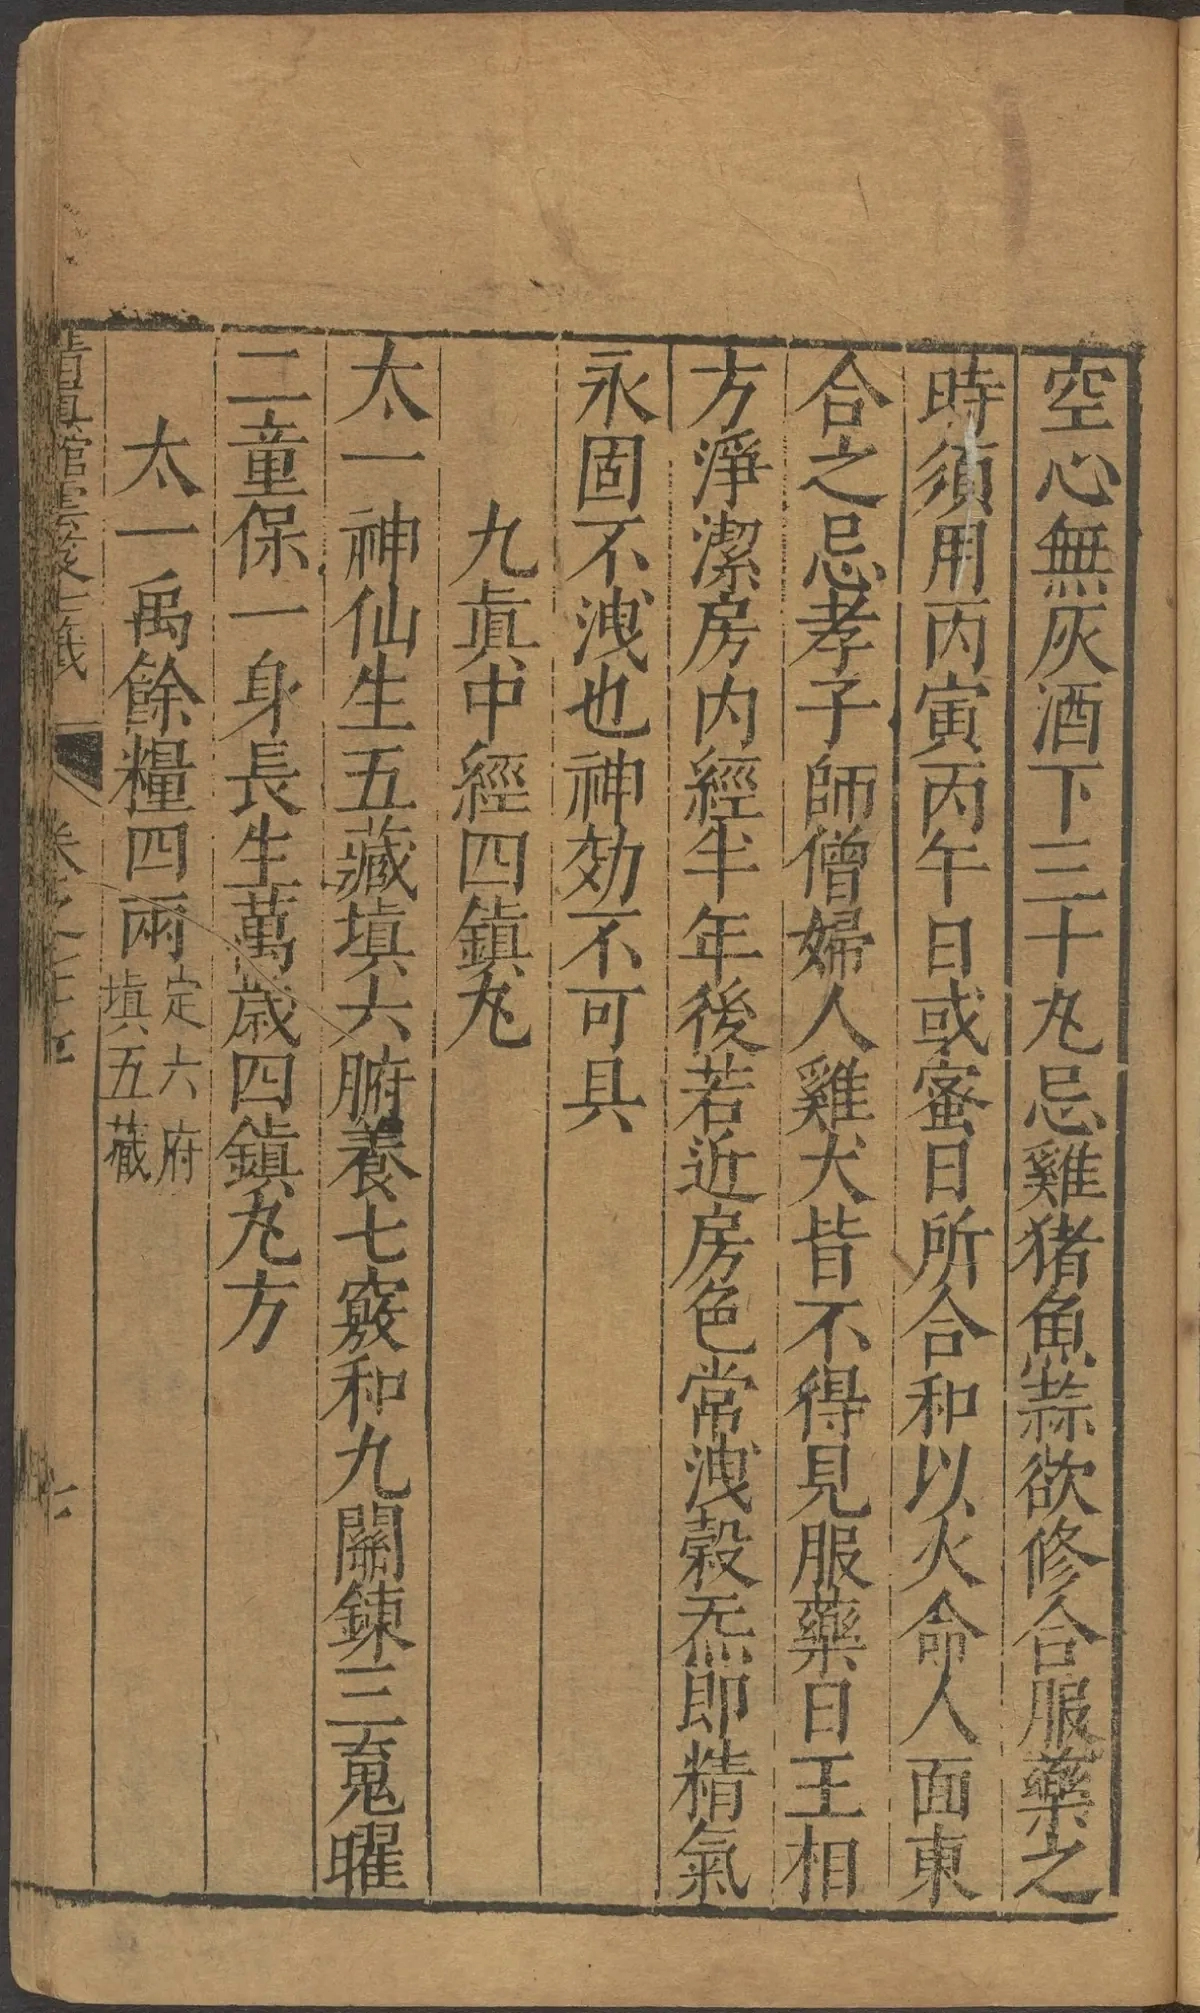 空心無灰酒下三十丸忌雞猪魚蒜欲修合服藥之
時須用丙寅丙午日或蜜日所合和以火命人面東
合之忌孝子師僧婦人雞犬皆不得見服藥日王相
方淨潔房内經半年後若近房色常洩穀炁即精氣
永固不洩也神効不可具
九眞中經四鎮丸
太一神仙生五藏填六腑養七竅和九關鍊三䰟曜
二童保一身長生萬歳四鎮丸方
太一禹餘糧四兩定六府
填五藏
清真館雲笈七籤
卷之七十七